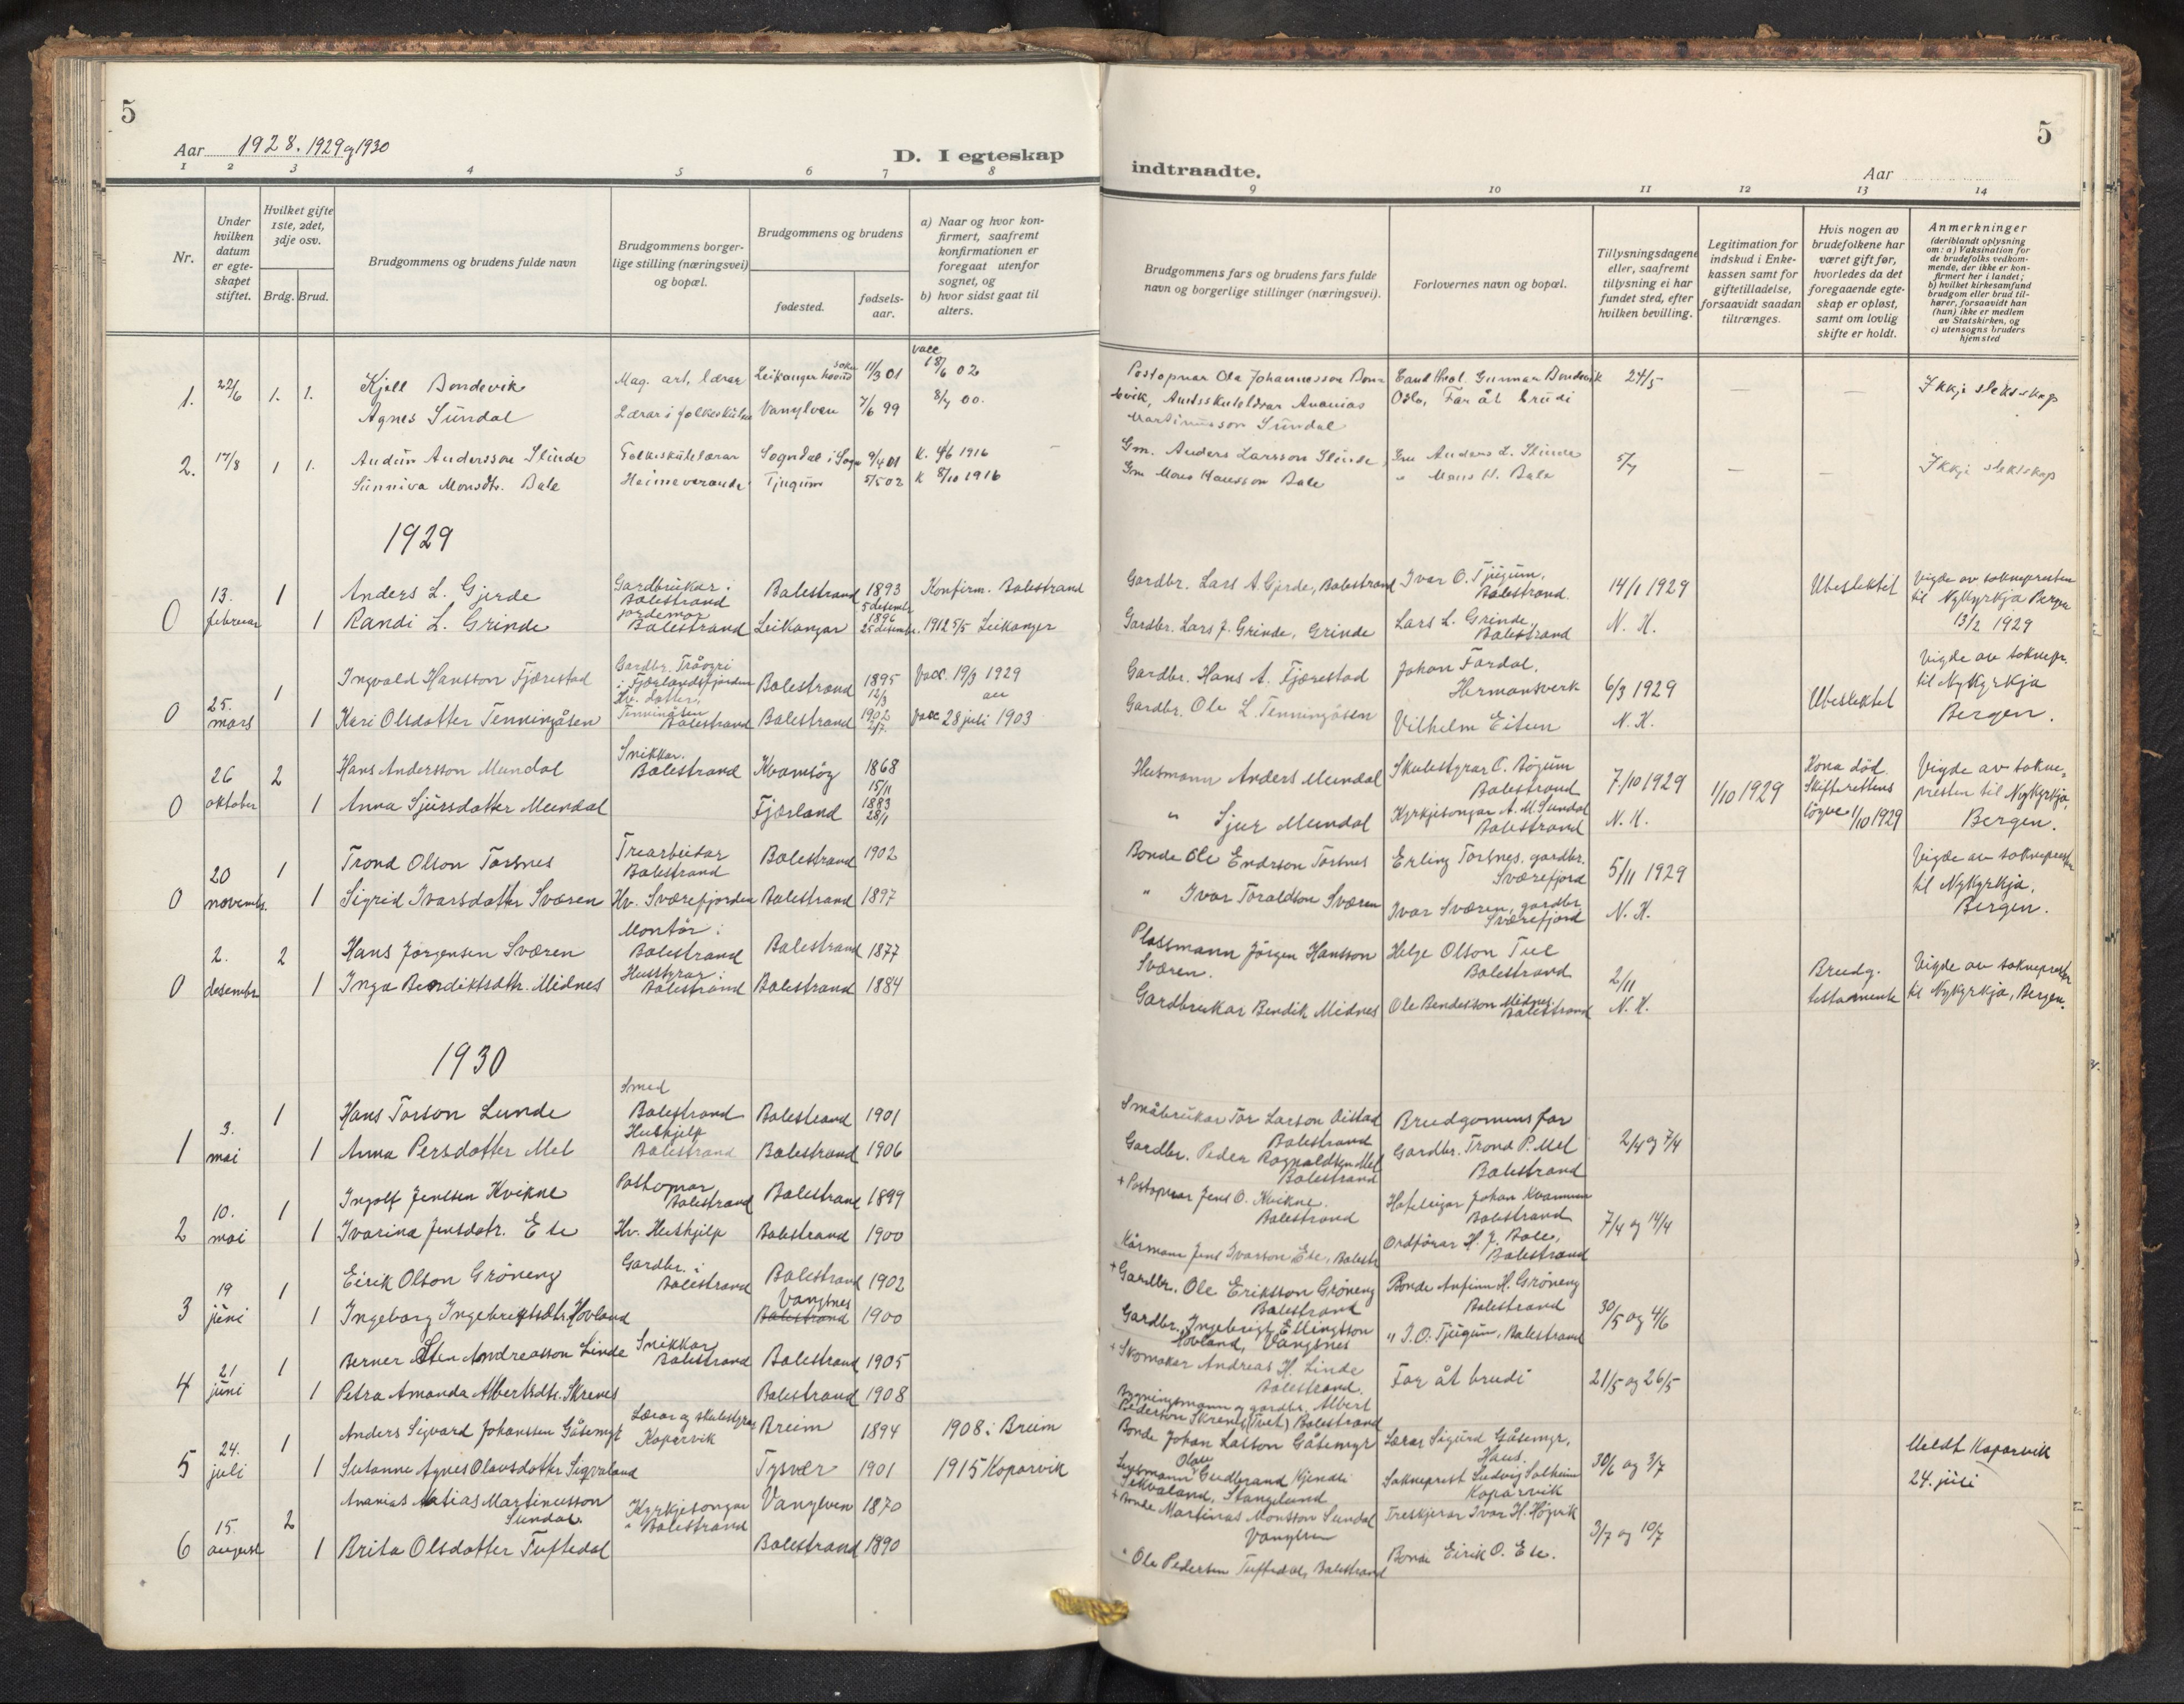 5
Aar 1928. 1929 og 1930
D. I egteskap
1 2 3 4 5 6 7 8
Nr.
Under hvilken datum er egteskapet stiftet.
Hvilket gifte 1ste, 2det, 3dje osv.
Brdg. Brud.
Brudgommens og brudens fulde navn
Brudgommens borgerlige stilling (næringsvei) og bopæl.
Brudgommens og brudens
fødested.
fødselsaar.
a) Naar og hvor konfirmert, saafremt konfirmationen er foregaat utenfor sognet, og
b) hvor sidst gaat til alters.
1. 22/6 1. 1. Kjell Bondevik Mag. art, lærar Leikanger 11/3 01 vacc 18/6 02
Agnes Sundal Lærar i folkeskulen Vanylven 7/6 99 8/7 00.
2. 17/8 1 1. Audun Andersson Slinde Folkeskulelærar Sogndal i Sogn 9/4 01 K. 4/6 1916
Sunniva Monsdtr. Bale Heimeverande Tjugum 5/5 02 K 8/10 1916
1929
0 13. februar 1 Anders L. Gjerde Gardbrukar i Balestrand Balestrand 1893 5 desembr Konfirm. Balestrand
1 Randi L. Grinde jordemor Balestrand Leikanger 1896 25 desembr. 1912 5/5 Leikanger
0 25. mars 1 Ingvald Hansson Fjærestad Gardbr. i Fjærlandsfjorden Balestrand 1895 12/3 Vacc. 19/3 1929
1 Kari Olsdotter Tenningåsen Hv. dotter, Tenningåsen Balestrand Balestrand 1902 2/7 Vacc 28 juli 1903
0 26 oktober 2 Hans Andersson Mundal Snikkar. Balestrand Kvamsøy 1868 15/11
1 Anna Sjursdotter Mundal Fjærland 1883 28/1
0 20 novembr. 1 Trond Olson Torsnes Trearbeidar Balestrand Balestrand 1902
1 Sigrid Ivarsdotter Sværen Hv. Sværefjorden Balestrand 1897
0 2. desembr 2 Hans Jørgensen Sværen Montør i Balestrand Balestrand 1877
1 Inga Bendiktsdtr. Midnes Husstyrar i Balestrand Balestrand 1884
1930
1 3. mai 1 Hans Torson Lunde Smed Balestrand Balestrand 1901
1 Anna Persdotter Mel Huskjelp Balestrand Balestrand 1906
2 10. mai 1 Ingolf Jenssen Kvikne Postopnar Balestrand Balestrand 1899
1 Ivarina Jensdotr. Ese Hv. Huskjelp Balestrand 1900
3 19 juni 1 Eirik Olson Grøneng Gardbr. i Balestrand Balestrand 1902
1 Ingeborg Ingebrigtsdtr. Hovland Vangsnes Balestrand 1900
4 21 juni 1 Berner Sten Andreasson Linde Snikkar Balestrand Balestrand 1905
1 Petra Amanda Albertsdtr. Skrenes Balestrand 1908
5 24. juli 1 Anders Sigvard Johanssen Gåsemyr Lærar og skulestyrar Koparvik Breim 1894 1908 i Breim
1 Susanne Agnes Olavsdotter Sigvaland Tysvær 1901 1915 Koparvik
6 15. august 2 Ananias Matias Martinusson Sundal. Kyrkjesongar Balestrand Vanylven 1870
1 Brita Olsdotter Tuftedal Balestrand 1890
5
indtraadte.
Aar
9 10 11 12 13 14
Brudgommens fars og brudens fars fulde navn og borgerlige stillinger (næringsvei).
Forlovernes navn og bopæl.
Tillysningsdagene eller, saafremt tillysning ei har fundet sted, efter hvilken bevilling.
Legitimation for indskud i Enkekassen samt for giftetilladelse, forsaavidt saadan tiltrænges.
Hvis nogen av brudefolkene har været gift før, hvorledes da det foregaaende egteskap er opløst, samt om lovlig skifte er holdt.
Anmerkninger (deriblandt oplysning om: a) Vaksination for de brudefolks vedkommende, der ikke er konfirmert her i landet; b) hvilket kirkesamfund brudgom eller brud tilhører, forsaavidt han (hun) ikke er medlem av Statskirken, og c) utensogns bruders hjemsted
Postopnar Ola Johannesson Bondevik, Amtsskulelærar Ananias Martinusson Sundal
Cand. theol. Gunnar Bondevik Oslo, Far åt brudi
24/5 — — Ikkje slektskap
Gm. Anders Larsson Slinde Gm Anders L. Slinde 5/7 — — Ikkje slektskap
Gm Mons Hansson Bale " Mons H. Bale
Gardbr. Lars A. Gjerde, Balestrand Ivar O. Tjugum, Balestrand. 14/1 1929 Ubeslektet Vigde av soknepresten til Nykyrkja Bergen 13/2 1929
Gardbr. Lars J. Grinde, Grinde Lars L. Grinde, Balestrand N. K.
Gardbr. Hans A. Fjærestad Johan Fardal, Hermansverk 6/3 1929 Ubeslektet Vigde av soknepr. til Nykyrkja Bergen.
Gardbr. Ole L. Tenningåsen Vilhelm Eitun N. K.
Husmann Anders Mundal Skulestyrar O. Bøyum Balestrand 7/10 1929 1/10 1929 Kona død. Skifterettens løyve 1/10 1929 Vigde av soknepresten til Nykyrkja, Bergen.
" Sjur Mundal Kyrkjesongar A. M. Sundal Balestrand N. K.
Bonde Ole Endreson Torsnes Erling Torsnes. gardbr. Sværefjord 5/11 1929 Vigde av soknepresten til Nykyrkja, Bergen.
" Ivar Toraldson Sværen Ivar Sværen, gardbr, Sværefjord N. K.
Plassmann Jørgen Hansson Sværen. Helge Olson Tue Balestrand 2/11 Brudg. testamente Vigde av soknepresten til Nykyrkja, Bergen.
Gardbrukar Bendik Midnes Ole Bendikson Midnes, Balestrand N. K.
Småbrukar Tor Larson Balestrand Brudgomens far 2/4 og 7/4
Gardbr. Peder Ragnaldsen Mel Balestrand Gardbr. Trond P. Mel Balestrand
+ Postopnar Jens O. Kvikne. Balestrand Hoteleigar Johan Kvamme Balestrand 7/4 og 14/4
Kårmann Jens Ivarson Ese, Balestr Ordførar H. J. Bale, Balestrand
+ Gardbr. Ole Eriksson Grøneng Balestrand Bonde Anfinn H. Grøneng Balestrand 30/5 og 4/6
Gardbr. Ingebrigt Ellingsson Hovland, Vangsnes " I. O. Tjugum, Balestrand
+ Skomaker Andreas H. Linde Balestrand. Far åt brudi 21/5 og 26/5
Bygningsmann og gardbr. Albert Pederson Skrenes (Tvet) Balestrand
Bonde Johan Lasson Gåsemyr Lærar Sigurd Gåsemyr, Haus. 30/6 og 3/7 Meldt Koparvik 24. juli
Olav Gudbrand Sekvaland, Stangeland Sokneprest Ludvig Solheim Koparvik
+ Bonde Martinus Monsson Sundal Vanylven Treskjerar Ivar H. Høyvik 3/7 og 10/7
" Ole Pedersen Tuftedal, Balestrand Bonde Eirik O. Ese.